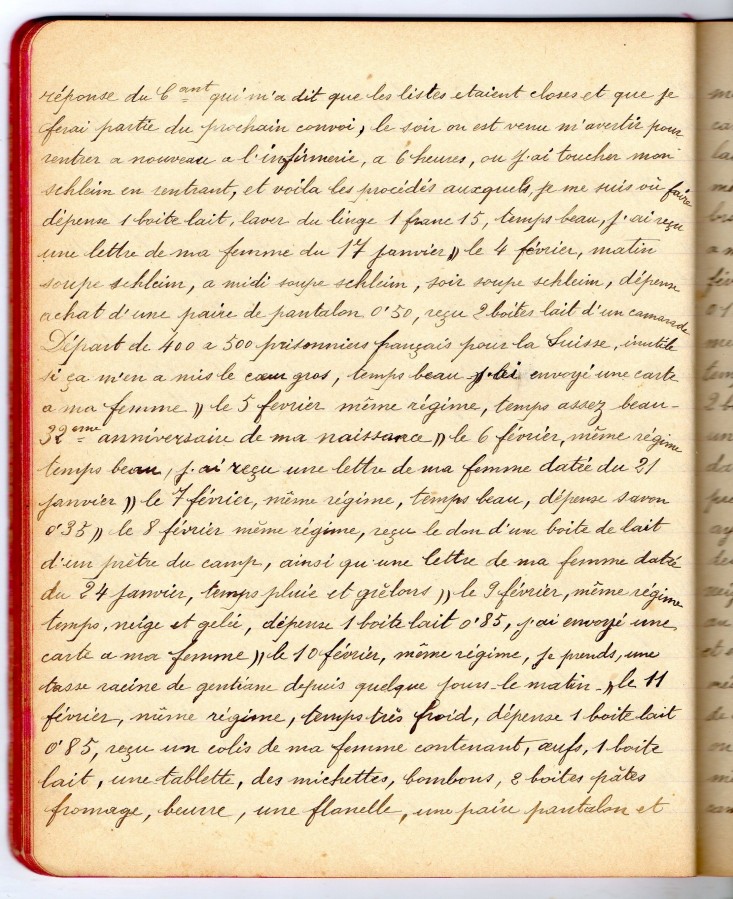 réponse du Cant qui m'a dit que les listes etaient closes et que je
ferai partie du prochain convoi, le soir on est venu m'avertir pour
rentrer a nouveau a l'infirmerie, a 6 heures, ou j'ai toucher mon
schleim en rentrant, et voila les procédés auxquels, je me suis où faire
dépense 1 boite lait, laver du linge 1 franc 15, temps beau, j'ai reçu
une lettre de ma femme du 17 janvier )) le 4 février, matin
soupe schleim, a midi soupe schleim, soir soupe schleim, dépense
achat d'une paire de pantalon 0'50, reçu 2 boites lait d'un camarade
Départ de 400 a 500 prisonniers français pour la Suisse, inutile
si ça m'en a mis le cœur gros, temps beau j'ai envoyé une carte
a ma femme )) le 5 fevrier même régime, temps assez beau -
32eme anniversaire de ma naissance )) le 6 février, même régime
temps beau, j'ai reçu une lettre de ma femme datée du 21
janvier )) le 7 février, même régime, temps beau, dépense savon
0'35 )) le 8 février même régime, reçu le don d'une boite de lait
d'un prêtre du camp, ainsi qu'une lettre de ma femme datée
du 24 janvier, temps pluie et grêlons )) le 9 février, même régime
temps, neige et gelée, dépense 1 boite lait 0'85, j'ai envoyé une
carte a ma femme )) le 10 février, même régime, je prends, une
tasse racine de gentiane depuis quelque jours le matin - )) le 11
février, même régime, temps très froid, dépense 1 boite lait
0'85, reçu un colis de ma femme contenant, œufs, 1 boite
lait, une tablette, des michettes, bombons, 2 boites pâtes
fromage, beurre, une flanelle, une paire pantalon et